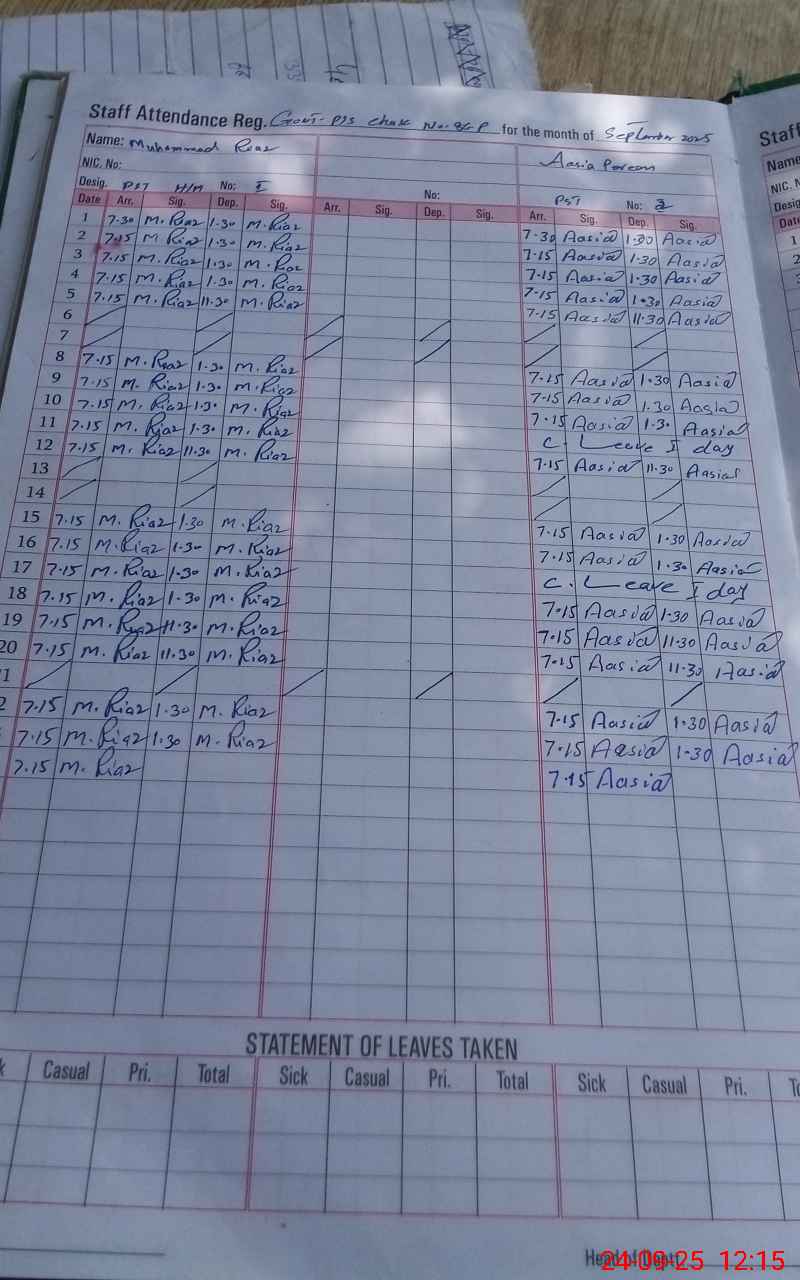 Staff Attendance Reg. Govt. P/S Chak No. 86-P for the month of September 2025
Name: Muhammad Riaz Aasia Parveen
NIC. No:
Desig. PST H/M No: I No: PST No: 2
Date Arr. Sig. Dep. Sig. Arr. Sig. Dep. Sig. Arr. Sig. Dep. Sig.
1 7.30 M. Riaz 1.30 M. Riaz 7.30 Aasia 1.30 Aasia
2 7.15 M. Riaz 1.30 M. Riaz 7.15 Aasia 1.30 Aasia
3 7.15 M. Riaz 1.30 M. Riaz 7.15 Aasia 1.30 Aasia
4 7.15 M. Riaz 1.30 M. Riaz 7.15 Aasia 1.30 Aasia
5 7.15 M. Riaz 11.30 M. Riaz 7.15 Aasia 11.30 Aasia
6
7
8 7.15 M. Riaz 1.30 M. Riaz 7.15 Aasia 1.30 Aasia
9 7.15 M. Riaz 1.30 M. Riaz 7.15 Aasia 1.30 Aasia
10 7.15 M. Riaz 1.30 M. Riaz 7.15 Aasia 1.30 Aasia
11 7.15 M. Riaz 1.30 M. Riaz C. Leave I day
12 7.15 M. Riaz 11.30 M. Riaz 7.15 Aasia 11.30 Aasia
13
14
15 7.15 M. Riaz 1.30 M. Riaz 7.15 Aasia 1.30 Aasia
16 7.15 M. Riaz 1.30 M. Riaz 7.15 Aasia 1.30 Aasia
17 7.15 M. Riaz 1.30 M. Riaz C. Leave I day
18 7.15 M. Riaz 1.30 M. Riaz 7.15 Aasia 1.30 Aasia
19 7.15 M. Riaz 11.30 M. Riaz 7.15 Aasia 11.30 Aasia
20 7.15 M. Riaz 11.30 M. Riaz 7.15 Aasia 11.30 Aasia
1
2 7.15 M. Riaz 1.30 M. Riaz 7.15 Aasia 1.30 Aasia
7.15 M. Riaz 1.30 M. Riaz 7.15 Aasia 1.30 Aasia
7.15 M. Riaz 7.15 Aasia
STATEMENT OF LEAVES TAKEN
Casual Pri. Total Sick Casual Pri. Total Sick Casual Pri.
Head of Deptt.
24-09-25 12:15
Staff
Name
NIC. N
Desig
Date
1
2